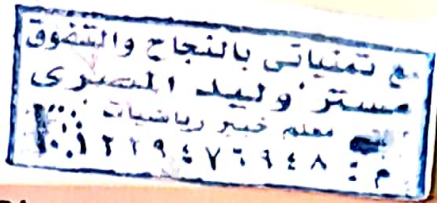 مع تمنياتى بالنجاح والتفوق
مستر وليد المصرى
معلم خبير رياضيات
م : ٠١٢٢٩٤٧٦٩٤٨